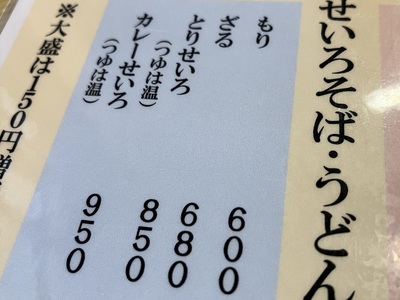 せいろそば・うどん
もり 600
ざる 680
とりせいろ（つゆは温） 850
カレーせいろ（つゆは温） 950
※大盛は150円増